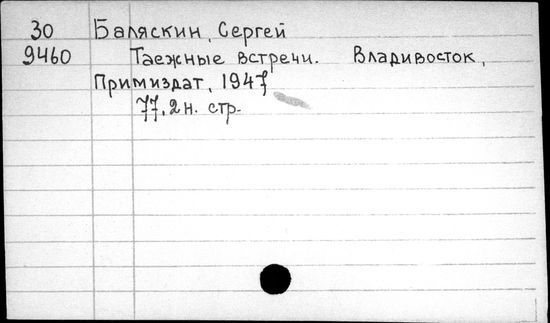 30 Баляскин, Сергей
9460 Таежные встречи. Владивосток,
Примиздат, 1947
77, 2 н. стр.